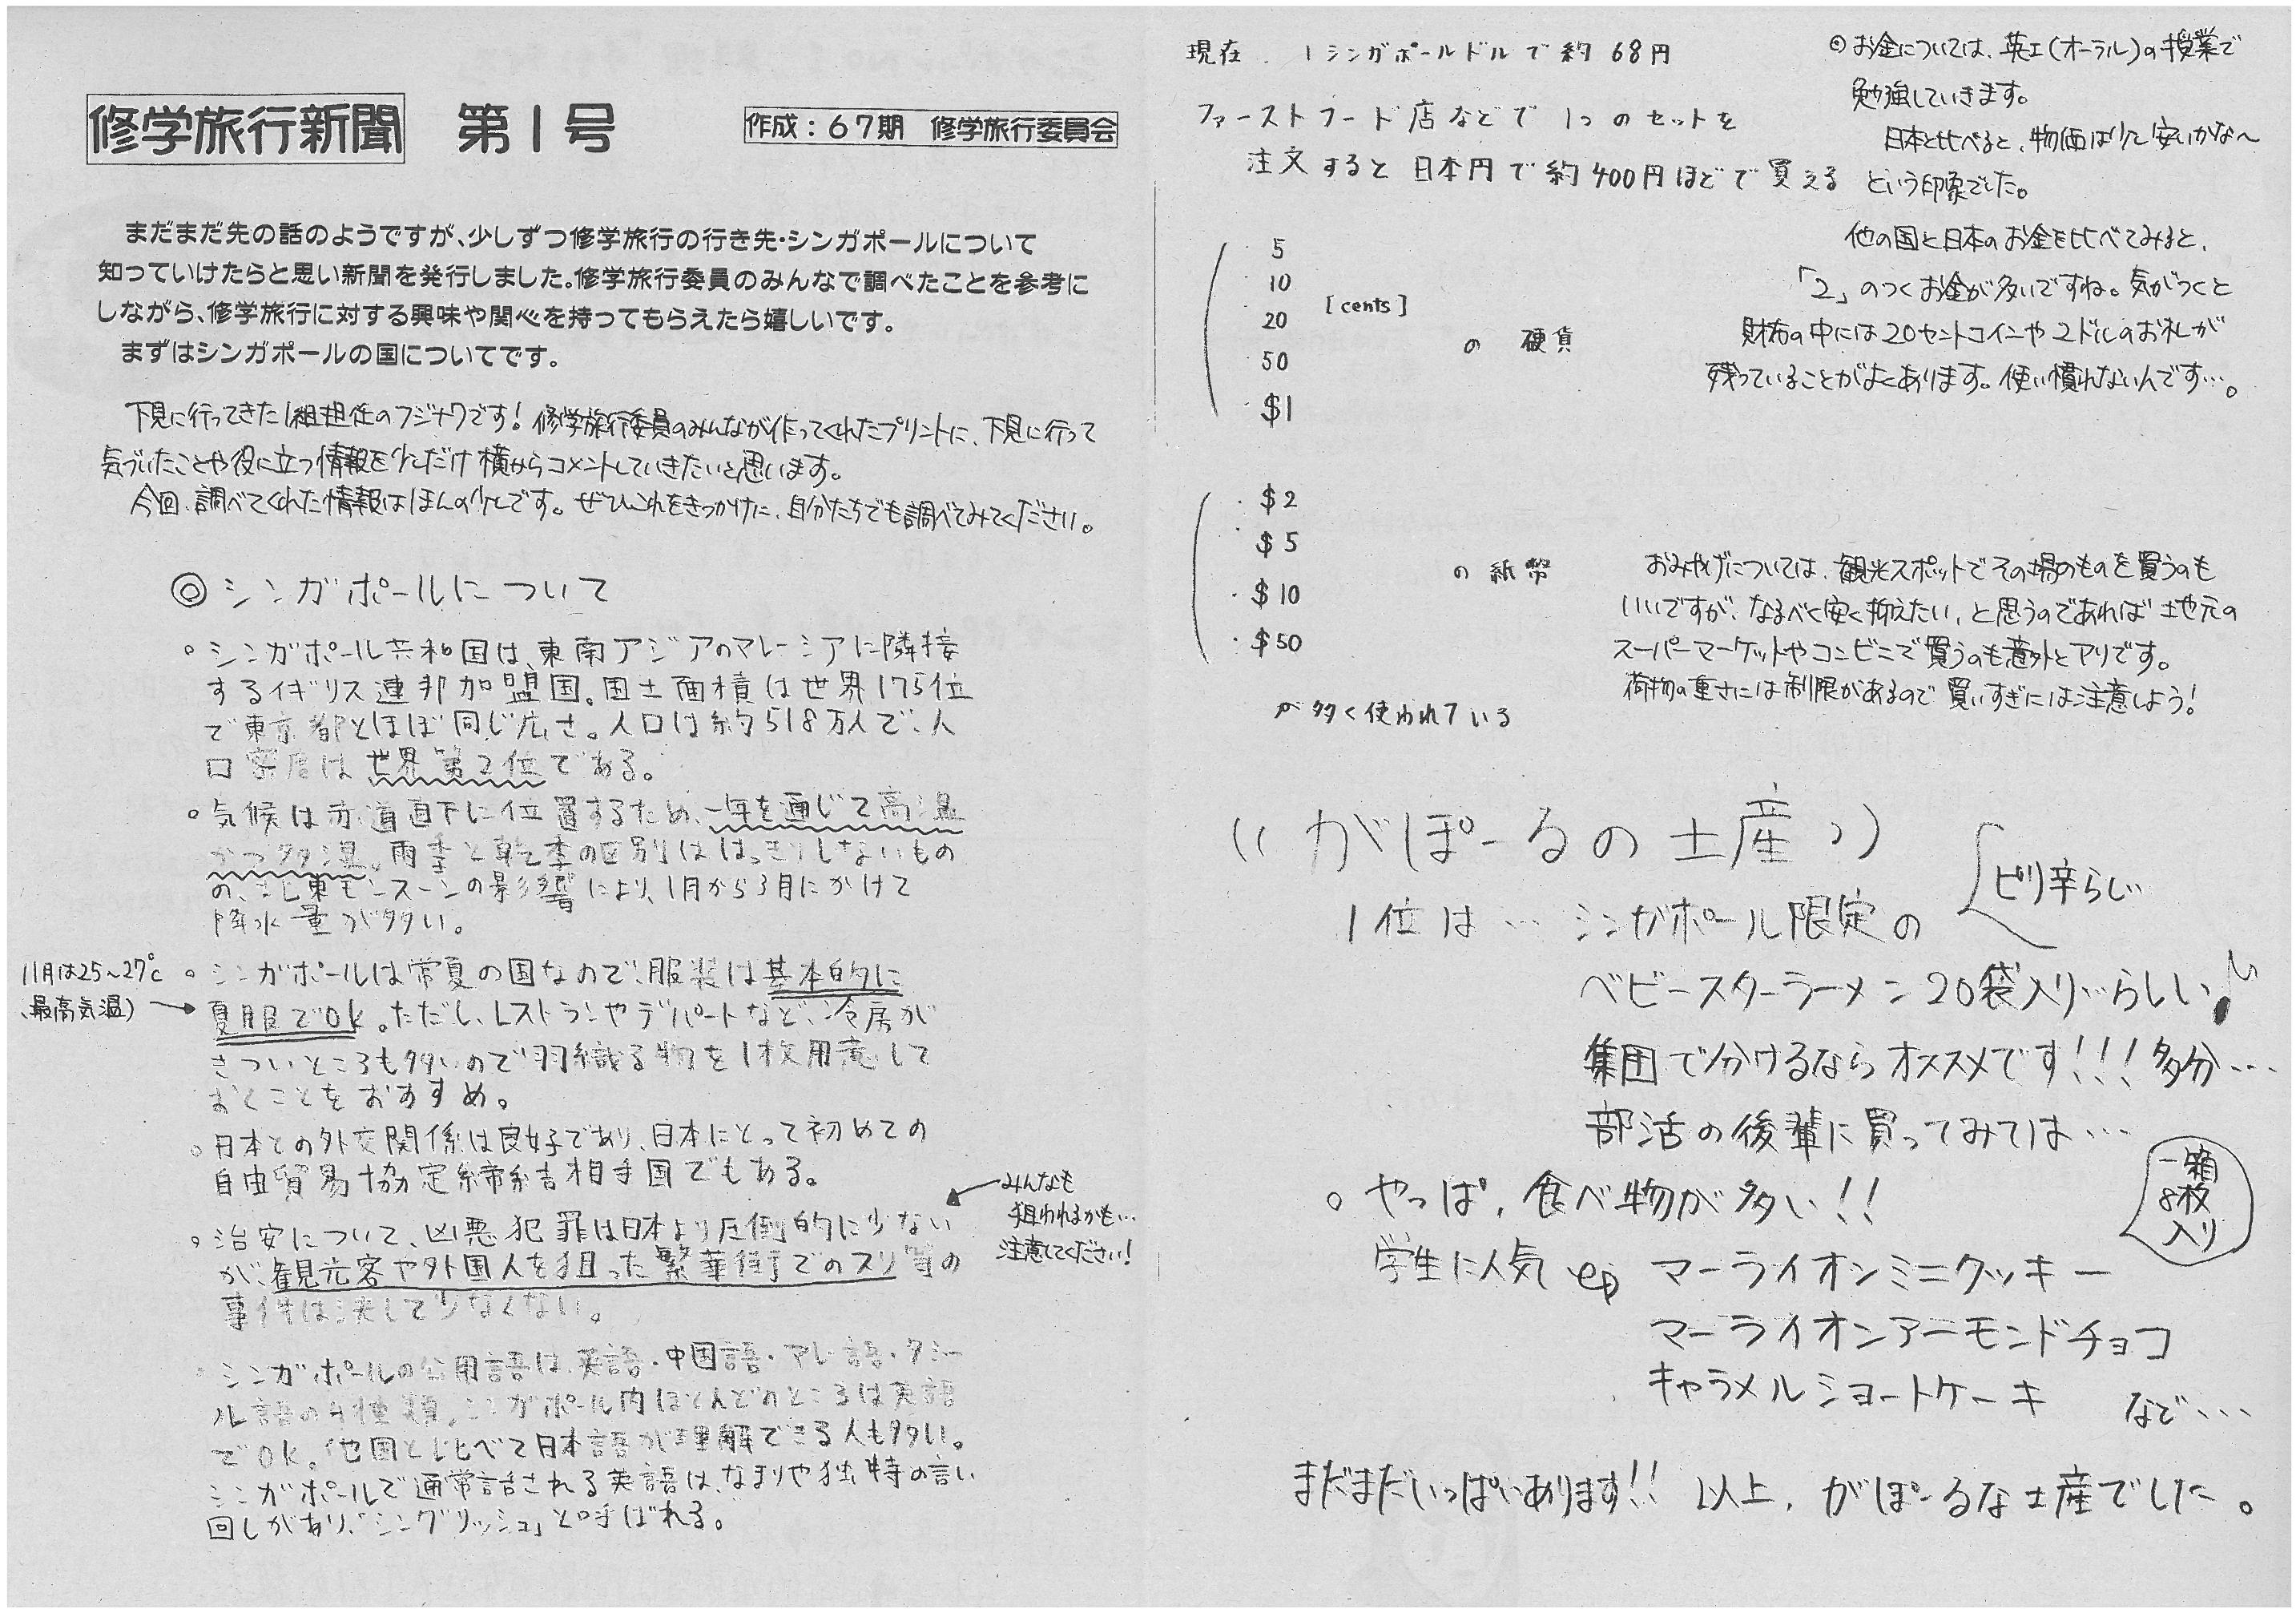 修学旅行新聞 第1号
作成：67期 修学旅行委員会
まだまだ先の話のようですが、少しずつ修学旅行の行き先・シンガポールについて
知っていけたらと思い新聞を発行しました。修学旅行委員のみんなで調べたことを参考に
しながら、修学旅行に対する興味や関心を持ってもらえたら嬉しいです。
まずはシンガポールの国についてです。
下見に行ってきた1組担任のフジナワです！修学旅行委員のみんなが作ってくれたプリントに、下見に行って
気づいたことや役に立つ情報を少しだけ横からコメントしていきたいと思います。
今回、調べてくれた情報はほんの少しです。ぜひこれをきっかけに、自分たちでも調べてみてください。
◎シンガポールについて
。シンガポール共和国は、東南アジアのマレーシアに隣接
するイギリス連邦加盟国。国土面積は世界175位
で東京都とほぼ同じ広さ。人口は約518万人で、人
口密度は世界第2位である。
。気候は赤道直下に位置するため、一年を通じて高温
かつ多湿。雨季と乾季の区別ははっきりしないもの
の、北東モンスーンの影響により、1月から3月にかけて
降水量が多い。
11月は25～27℃
(最高気温)→
。シンガポールは常夏の国なので、服装は基本的に
夏服でOK。ただし、レストランやデパートなど、冷房が
きついところも多いので羽織る物を1枚用意して
おくことをおすすめ。
。日本との外交関係は良好であり、日本にとって初めての
自由貿易協定締結相手国でもある。
みんなも
狙われるかも…
注意してください！
。治安について、凶悪犯罪は日本より圧倒的に少ない
が、観光客や外国人を狙った繁華街でのスリ等の
事件は決して少なくない。
。シンガポールの公用語は、英語・中国語・マレー語・タミー
ル語の4種類。シンガポール内ほとんどのところは英語
でOK。他国と比べて日本語が理解できる人も多い。
シンガポールで通常話される英語は、なまりや独特の言い
回しがあり、「シングリッシュ」と呼ばれる。
現在 1シンガポールドルで約68円
ファーストフード店などで1つのセットを
注文すると日本円で約400円ほどで買える
5
10
20 [cents]
50
$1
の硬貨
・$2
・$5
・$10
・$50
の紙幣
が多く使われている
◎お金については、英Ⅰ(オーラル)の授業で
勉強していきます。
日本と比べると、物価は少し安いかな～
という印象でした。
他の国と日本のお金を比べてみると、
「2」のつくお金が多いですね。気がつくと
財布の中には20セントコインや2ドルのお札が
残っていることがよくあります。使い慣れないんです…。
おみやげについては、観光スポットでその場のものを買うのも
いいですが、なるべく安く抑えたい、と思うのであれば地元の
スーパーマーケットやコンビニで買うのも意外とアリです。
荷物の重さには制限があるので買いすぎには注意しよう！
((がぽーるの土産))
1位は…シンガポール限定の
ピリ辛らしい
ベビースターラーメン20袋入り…らしい♪
集団で分けるならオススメです!!!多分…
部活の後輩に買ってみては…
。やっぱ、食べ物が多い!!
一箱
8枚
入り
学生に人気 マーライオンミニクッキー
マーライオンアーモンドチョコ
キャラメルショートケーキ など…
まだまだいっぱいあります!! 以上、がぽーるな土産でした。